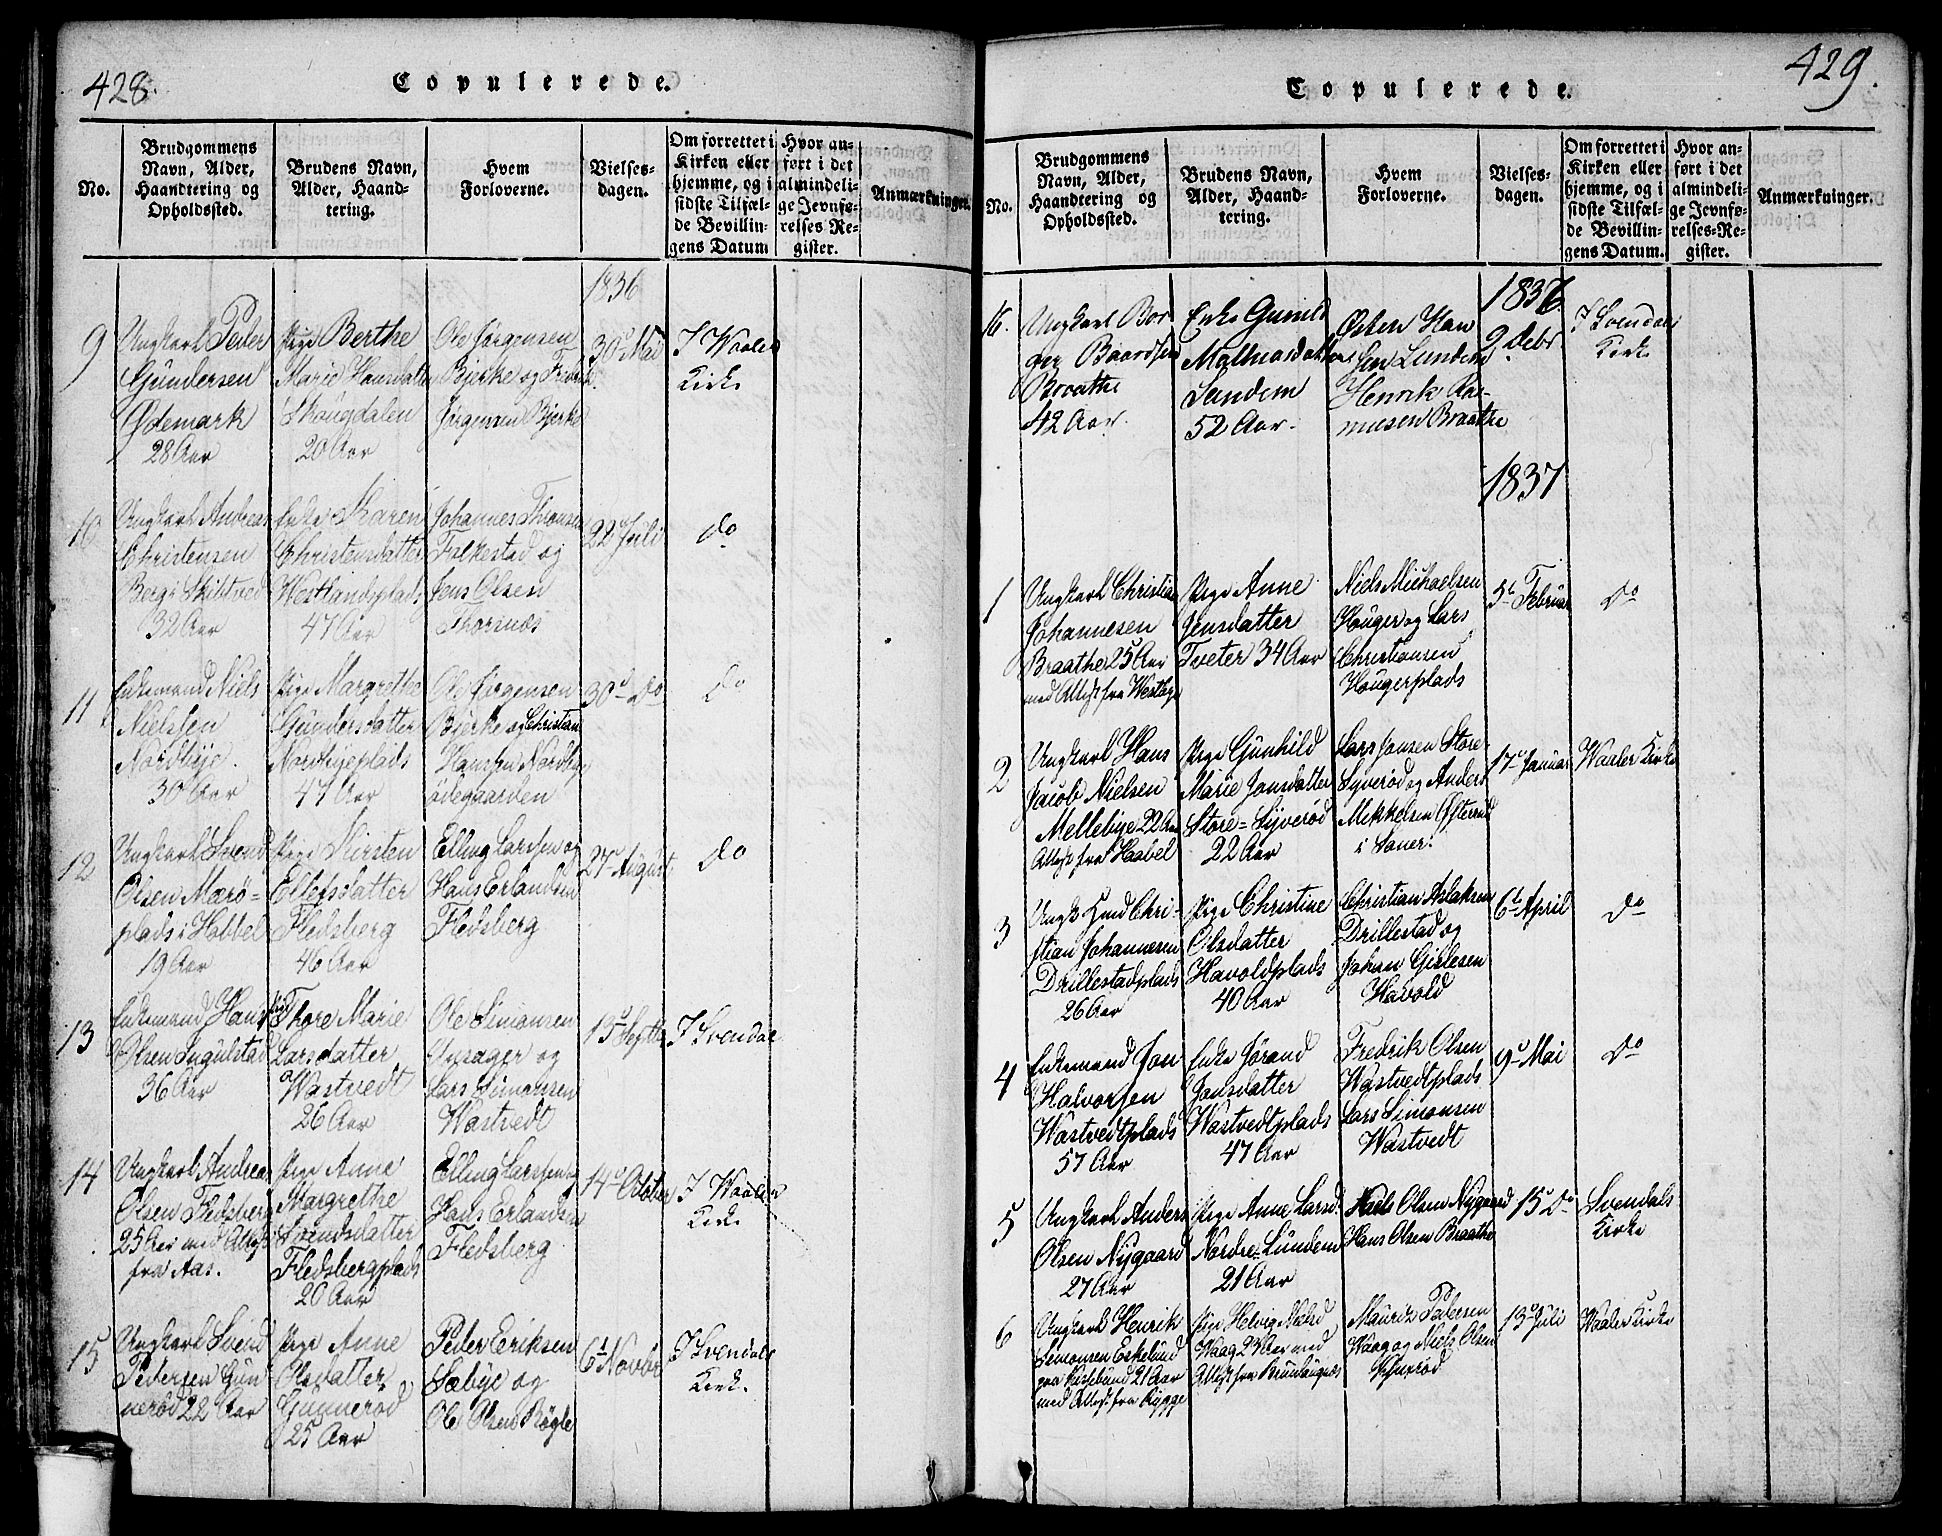 428.
Copulerede.
No.
Brudgommens
Navn, Alder,
Haandtering og
Opholdssted.
Brudens Navn,
Alder, Haand-
tering.
Hvem
Forloverne.
Vielses-
dagen.
Om forrettet i
Kirken eller
hjemme, og i
sidste Tilfæl-
de Bevillin-
gens Datum
Hvor an-
ført i det
almindeli-
ge Jevnfø-
relses-Re-
gister.
Anmærkninger.
1836
9
Ungkarl Peder
Gundersen
Ødemark
28 Aar
Pige Berthe
Marie Hansdatter
Skougdalen
20 Aar
Ole Jørgensen
Bjerke og Fredrik
Jørgensen Bjerke
30 Mai
I Waaler
Kirke
10
Ungkarl Andreas
Christensen
Berg i Skibtved
32 Aar
Enke Karen
Christensdatter
Westlandsplads
47 Aar
Johannes Thronsen
Falkestad og
Jens Olsen
Thornæs
22 Juli
do
11
Enkemand Niels
Nielsen
Nordbye.
30 Aar
Pige Margrethe
Gundersdatter
Nordbyeplads
47 Aar
Ole Jørgensen
Bjerke og Christian
Hanssen Nordbye
ødegaarden
30 Do
Do
12
Ungkarl Svend
Olsen Mærø-
plads i Hobbel
19 Aar
Pige Kirsten
Ellefsdatter
Fledsberg
46 Aar
Elling Larssen og
Hans Erlandsen
Fledsberg
27 August
Do
13
Enkemand Hans
Olsen Ingulstad
36 Aar
Pige Thore Marie
Larsdatter
Wastvedt
26 Aar
Ole Simonsen
Unsager og
Lars Simonsen
Wastvedt
15 Septbr
I Svendal
14
Ungkarl Andreas
Olsen Fledsberg
25 Aar med Attest
fra Aas.
Pige Anne
Margrethe
Svendsdatter
Fledsbergplads
20 Aar
Elling Larssen og
Hans Erlandsen
Fledsberg
14 October
I Waaler
Kirke
15
Ungkarl Svend
Pedersen Gun
nerød 22 Aar
Pige Anne
Olsdatter
Gunnerød
25 Aar
Peder Eriksen
Sæbye og
Ole Olsen Røgle
6 Novbr
I Svendals
Kirke
429.
Copulerede.
No.
Brudgommens
Navn, Alder,
Haandtering og
Opholdssted.
Brudens Navn,
Alder, Haand-
tering.
Hvem
Forloverne.
Vielses-
dagen.
Om forrettet i
Kirken eller
hjemme, og i
sidste Tilfæl-
de Bevillin-
gens Datum.
Hvor an-
ført i det
almindeli-
ge Jevnfø-
relses-Re-
gister.
Anmærkninger.
1836
16.
Ungkarl Bor
ger Baardsen
Braathe
42 Aar.
Enke Gunild
Mathiasdatter
Lundem
52 Aar.
Osten Han
sen Lundem
Henrik Ras-
musen Braathe
2 Debr
I Svendals
Kirke
1837
1
Ungkarl Christian
Johannesen
Braathe 25 Aar
med Attest fra Westbye
Pige Anne
Jensdatter
Tveter 34 Aar
Niels Michaelsen
Houger og Lars
Christiansen
Hougerplads
5t Februar
Do
2
Ungkarl Hans
Jacob Nielsen
Mellebye 22 Aar
Attest fra Haabel
Pige Gunhild
Marie Jonsdatter
Store=Syverød
22 Aar
Lars Jonsen Store-
Syverød og Anders
Mikkelsen Østerrød
i Saner.
17 Januar
Waaler Kirke
3
Ungk. Knud Chri-
stian Johannesen
Drillestadplads
26 Aar
Pige Christine
Olsdatter
Havoldplads
40 Aar
Christian Aslaksen
Drillestad og
Johan Gislesen
Havold
6t April
Do
4
Enkemand Jon
Halvorsen
Wastvedtplads
57 Aar
Enke Jørand
Jonsdatter
Wastvedtplads
47 Aar
Fredrik Olsen
Wastvedtplads
Lars Simonsen
Wastvedt
9 Mai
Do
5
Ungkarl Anders
Olsen Nygaard
27 Aar
Pige Anne Larsd.
Nordre Lundem
21 Aar
Niels Olsen Nygaard
Hans Olsen Braathe
15 Do
Svendals
Kirke
6
Ungkarl Henrik
Simonsen Eskelund
21 Aar
med Attest fra Rygge
Pige Helvig Nielsd
Waag 23 Aar med
Attest fra
Mauritz Pedersen
Waag og Niels Olsen
13 Juli
Waaler Kirke